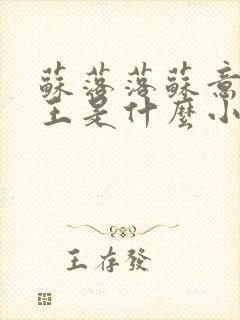 蘇落落蘇意
王是什麼小
王存發